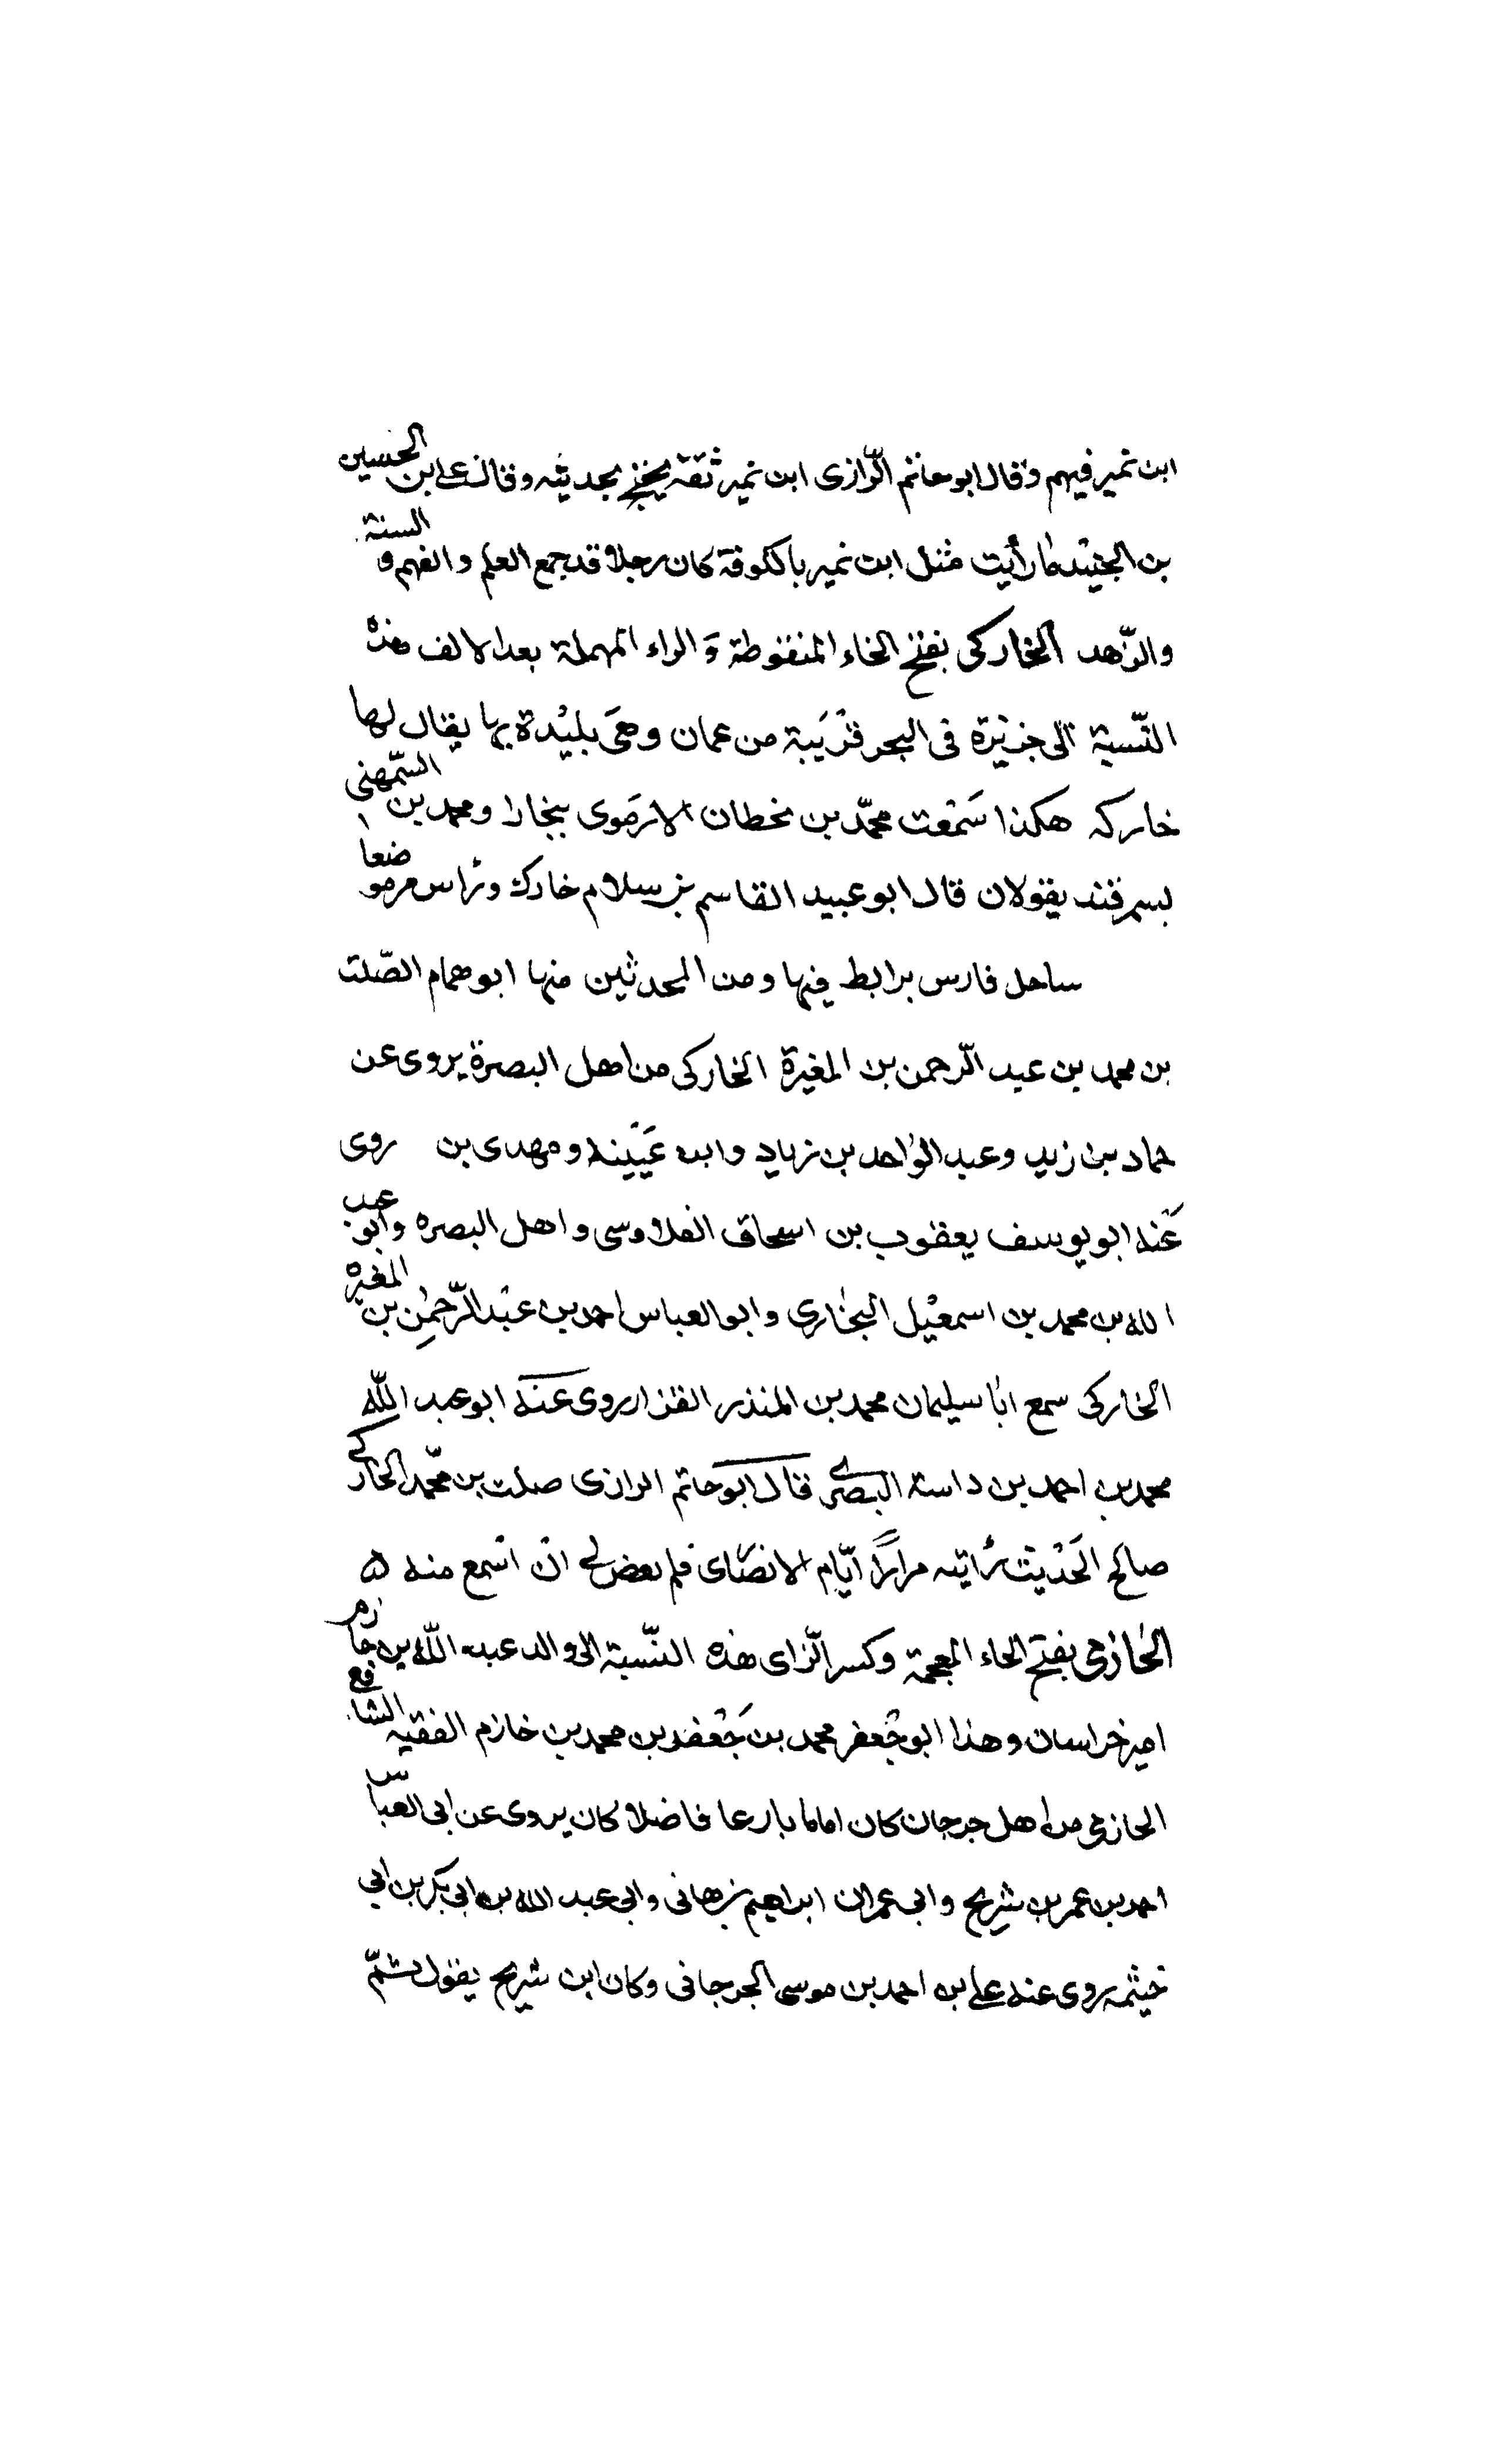 ابن نمير فيهم وقال ابو حاتم الرّازى ابن نمير ثقة يحتج بحديثه وقال على بن الحسين
بن الجنيد ما رأيت مثل ابن نمير بالكوفة كان رجلا قد جمع العلم والفهم و السنة
والزّهد الخاركى بفتح الخاء المنقوطة وَالراء المهملة بعد الالف هذه
النّسبة الى جزيْرة فى البحر قرَيبة من عمان وهىَ بليْدة بها يقال لها
خاركه هكذا سَمْعت محمّد بن نحطان الارمَوى ببخارا ومحمد بن السّمهنى
بسمرقند يقولان قال ابو عبيد القاسم بن سلام خارك ورأس مرموضعا
ساحل فارس برابط فيها ومن المحدثين منها ابو همام الصّلت
بن محمد بن عبد الرّحمن بن المغيرة الخاركى من اهل البصرة يروى عن
حماد بن زيد وعبد الواحد بن زياد وابن عَيَيْنه ومهدى بن روى
عَنْه ابو يوسف يعقوب بن اسحاق الفلاوسى واهل البصره وأبو عبد
الله بن محمد بن اسمعيْل البخارى وابو العباس احمد بن عبْد الرّحمٰن بن المغيره
الخاركى سمع ابا سليمان محمد بن المنذر القزاز روى عنه ابو عبد اللّه
محمد بن احمد بن داسة البصرى قال ابو حاتم الرازى صلت بن محّمد الخاركى
صالح الحَدْيث رأيته مراراً ايّام الانصَاى فلم بعض لى ان اسمع منه ه
الخازمى بفتح الحاء المعجمة وكسر الزّاى هذه النّسبة الى والد عبد اللّه بن خازم
امير خراسان وهذا ابو جْعفر محمد بن جَعْفر بن محمد بن خازم الفقيه الشافع
الحازمى من اهل جرجان كان اماما بارعا فاضلا كان يروى عن ابى العباس
احمد بن عمر بن شريح وابى عمران ابراهيم بن هانى وابى عبد الله بن ابى بكر بن ابى
خيثمه روى عنه على بن احمد بن موسى الجرجانى وكان ابن شريح يقول